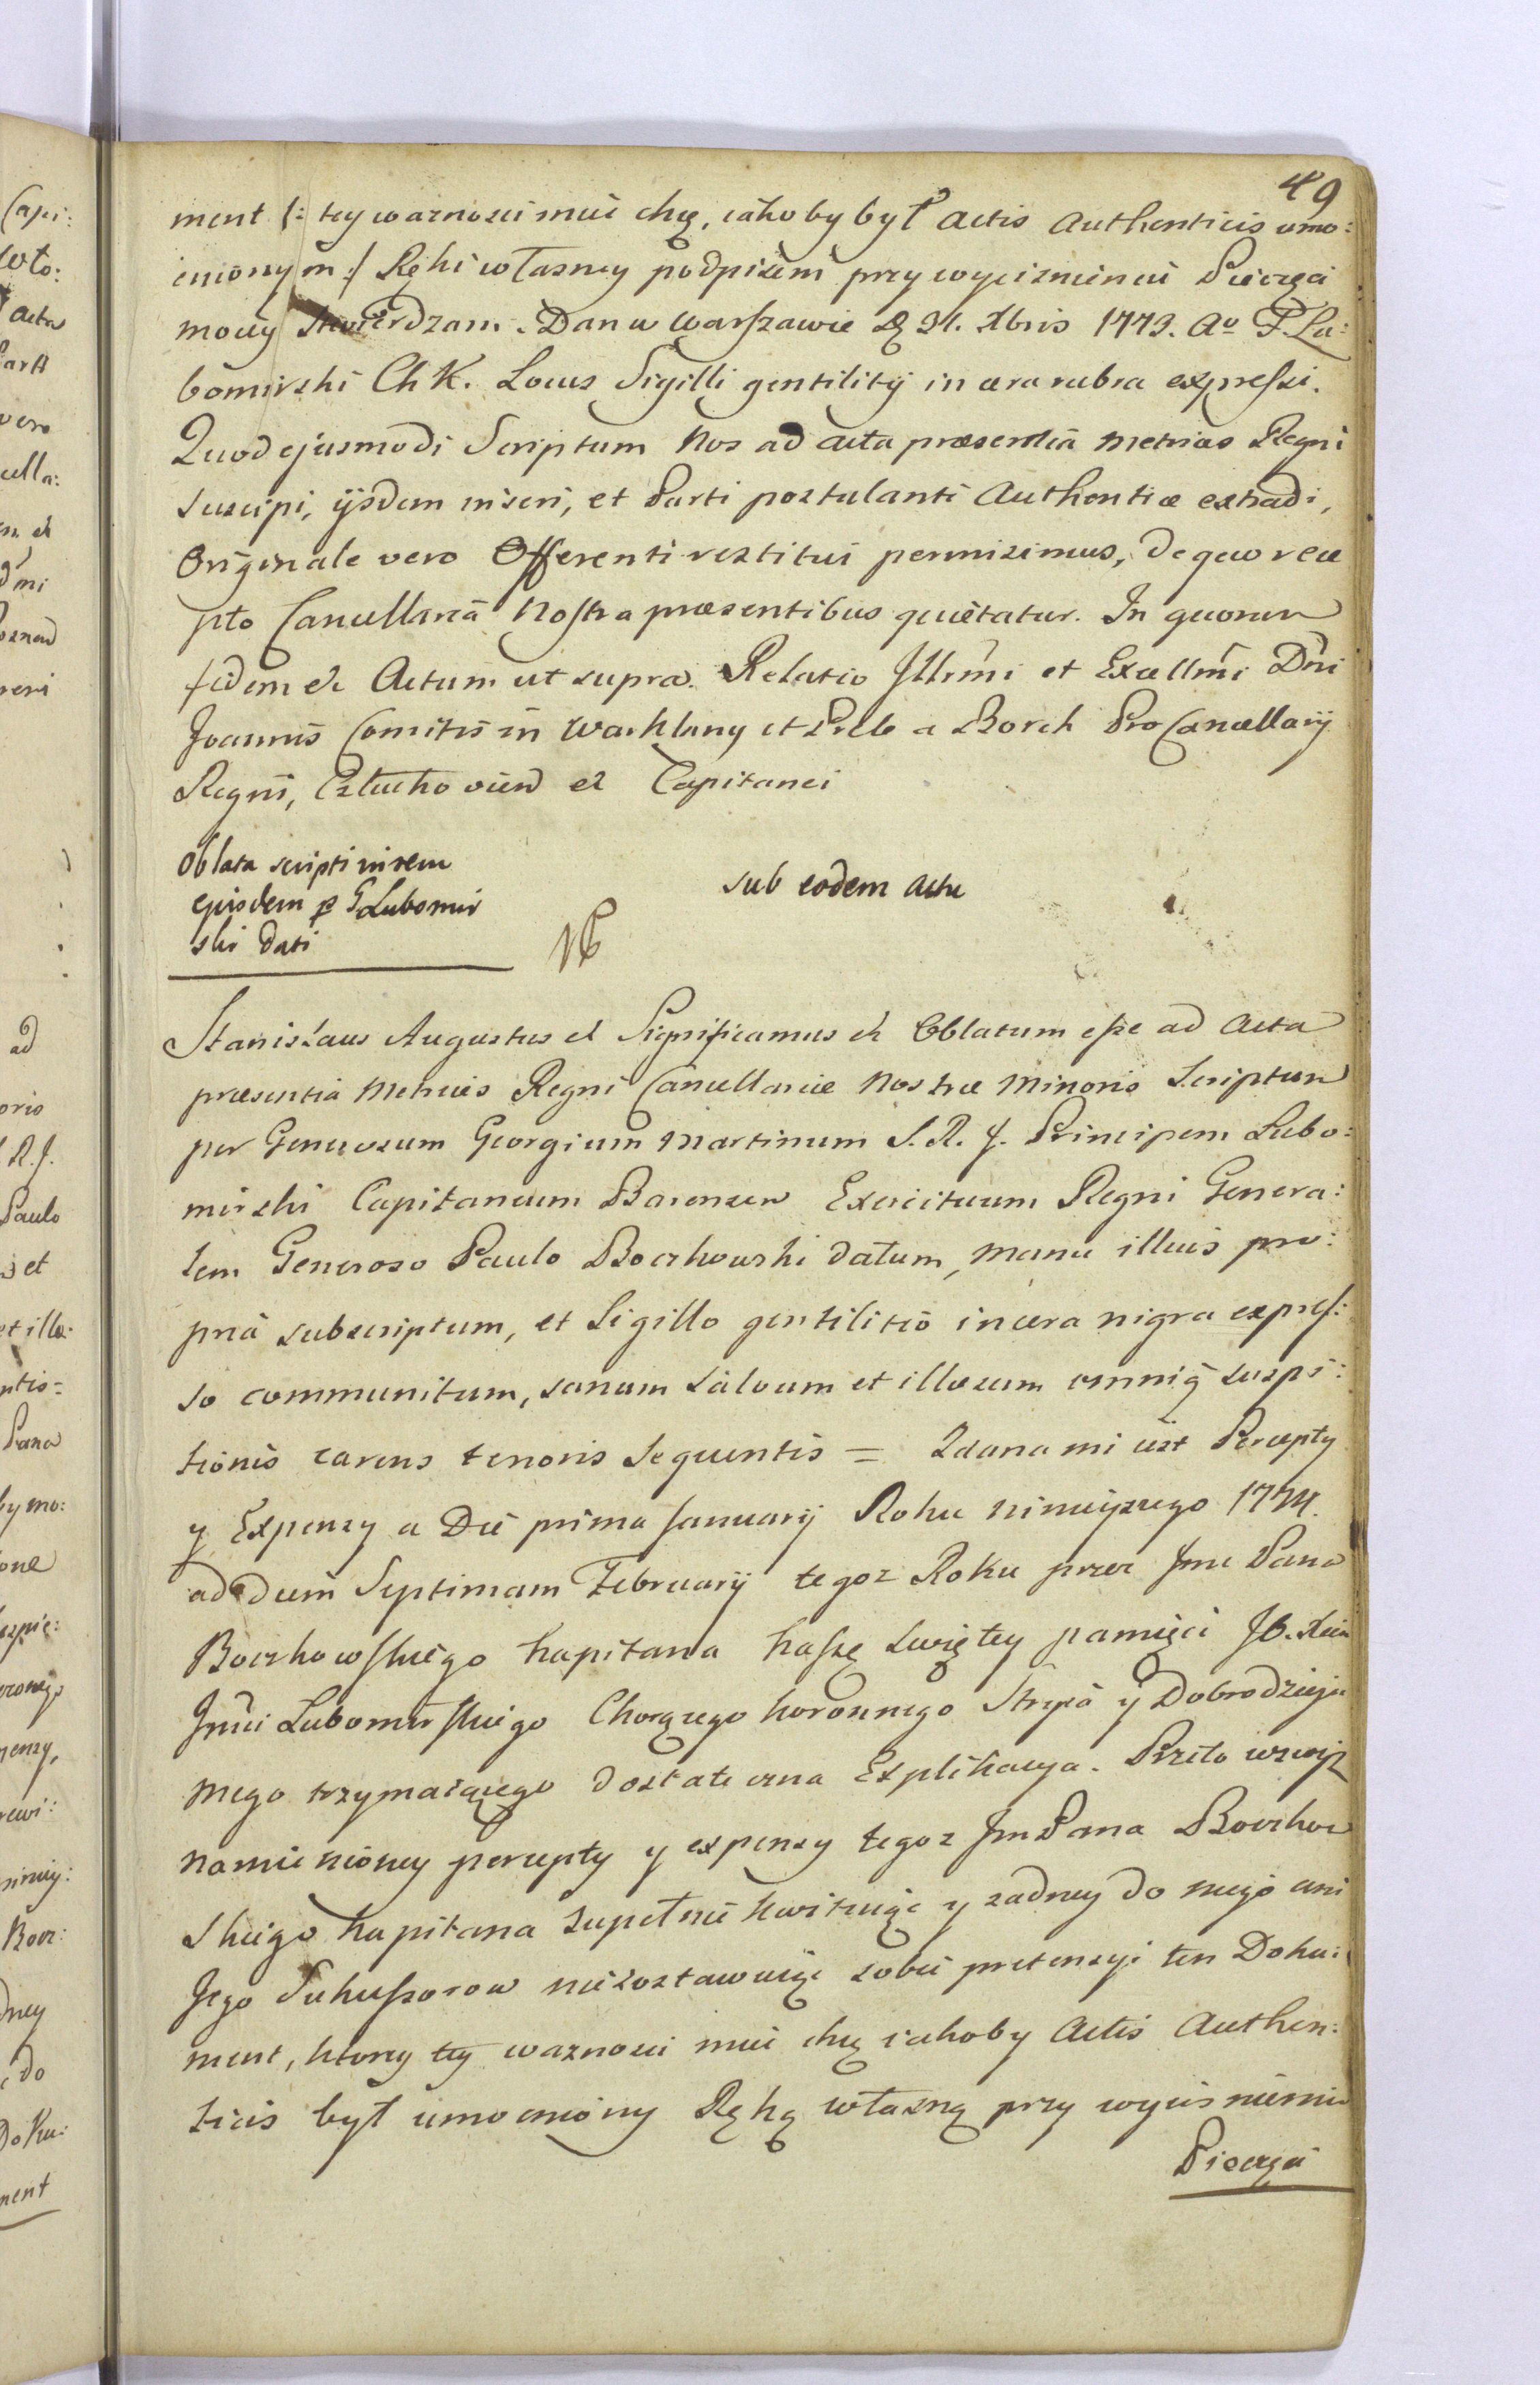 49
ment (: tey waznosci miec chcę, iakoby był actis authenticis umo:
cniony m :/ Ręki własney podpisem przy wycisnieniu Pieczęci
moiey stwierdzam. Dan w Warszawie D 31. Xbris 1773. Ao F. Lu:
bomirski Ch K. Locus Sigilli gentilitij in cera rubra expressi.
Quod ejusmodi Scriptum Nos ad acta præsentia Metrices Regni
suscipi, ijsdem inseri, et Parti postulanti Authentice extradi,
Originale vero Offerenti restitui permisimus, de quo rece
pto Cancellaria Nostra præsentibus quietatur. In quorum
fidem et Actum ut supra. Relatio Illrmi et Excellmi Dni
Joannis Comitis in Warklany et Prele a Borch Pro Cancellarij
Regni, Człuchovien et Capitanei
Oblata scripti itidem
ejusdem p G Lubomir
ski dati
sub eodem actu
Stanislaus Augustus et Significamus et Oblatum esse ad Acta
præsentia Metrices Regni Cancellariæ Nostræ Minoris Scriptum
per Generosum Georgium Martinum S. R. J. Principem Lubo:
mirski Capitaneum Barensem Exercituum Regni Genera:
lem Generoso Paulo Boczkowski datum, manu illius pro:
pria subscriptum, et Sigillo gentilitio in cera nigra expres:
so communitum, sanum salvum et illæsum omniq suspi:
tionis carens tenoris sequentis = Zdana mi iest Percepty
y Expensy a Die prima Januarij Roku ninieyszego 1774.
ad diem Septimam Februarij tegoz Roku przez Jmc Pana
Boczkowskiego Kapitana Kassę swiętey pamięci JO. Xcia
Jmci Lubomirskiego Chorązego Koronnego Stryia y Dobrodzieja
mego trzymaiącego dostateczna Explikacya. Przeto wzwyz
namienioney percepty y expensy tegoz Jm Pana Boczkow
skiego Kapitana zupełnie kwituię y zadney do niego ani
Jego Sukcessorow niezostawuię sobie pretensyi ten Doku:
ment, ktory tey waznosci miec chcę iakoby Actis Authen:
ticis był umocniony Ręką własną przy wycisnieniu
Pieczęci